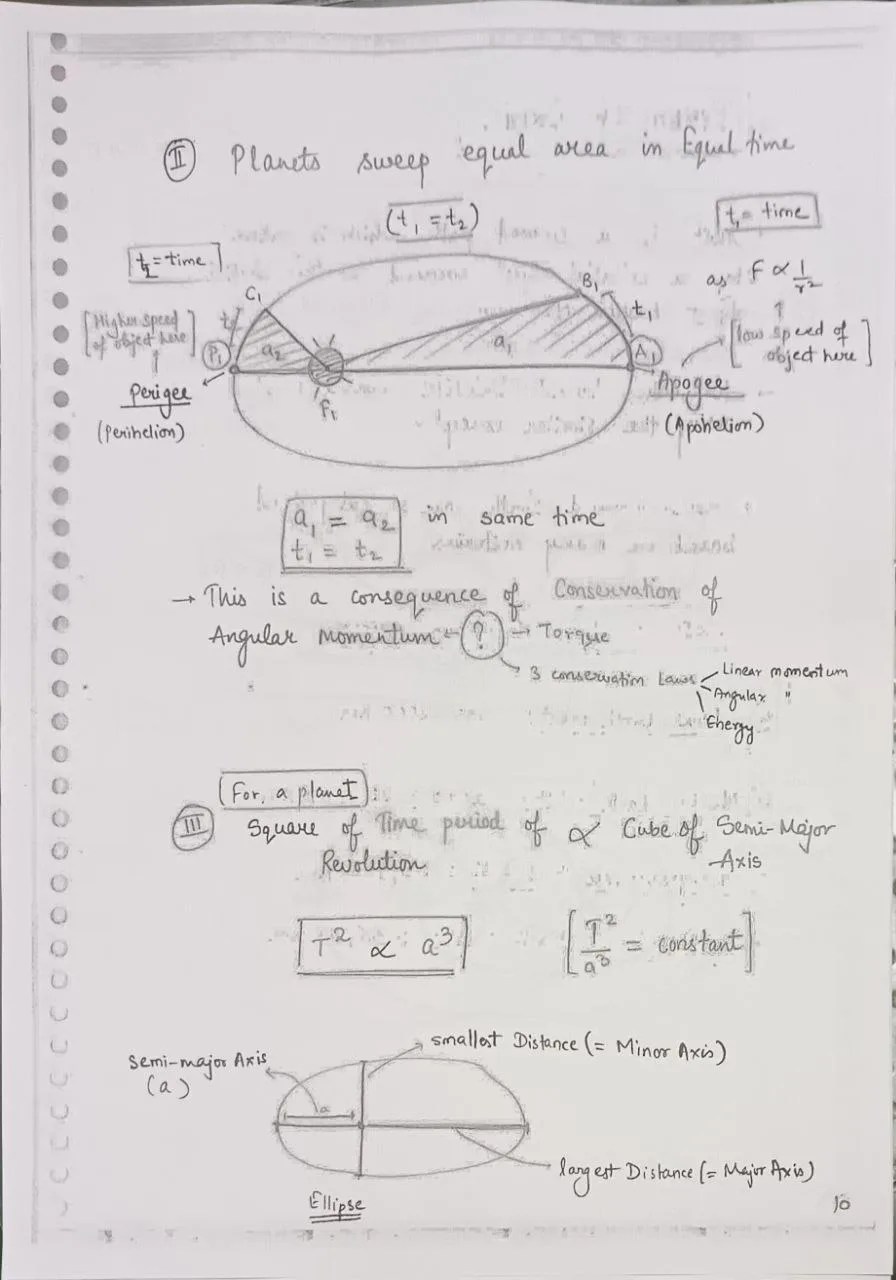 II Planets sweep equal area in Equal time
(t₁ = t₂)
t₁ = time
t₂ = time
as F ∝ 1/r²
C₁
B₁
t₁
[Higher speed of object here]
P₁
a₂
a₁
A₁
[low speed of object here]
Perigee
(Perihelion)
F₁
Apogee
(Apohelion)
a₁ = a₂ in same time
t₁ = t₂
→ This is a consequence of Conservation of
Angular Momentum ← ? → Torque
3 conservation Laws
Linear momentum
Angular "
Energy
For, a planet :
III Square of Time period of ∝ Cube of Semi-Major
Revolution Axis
T² ∝ a³
[T²/a³ = constant]
smallest Distance (= Minor Axis)
semi-major Axis
(a)
a
largest Distance (= Major Axis)
Ellipse
10